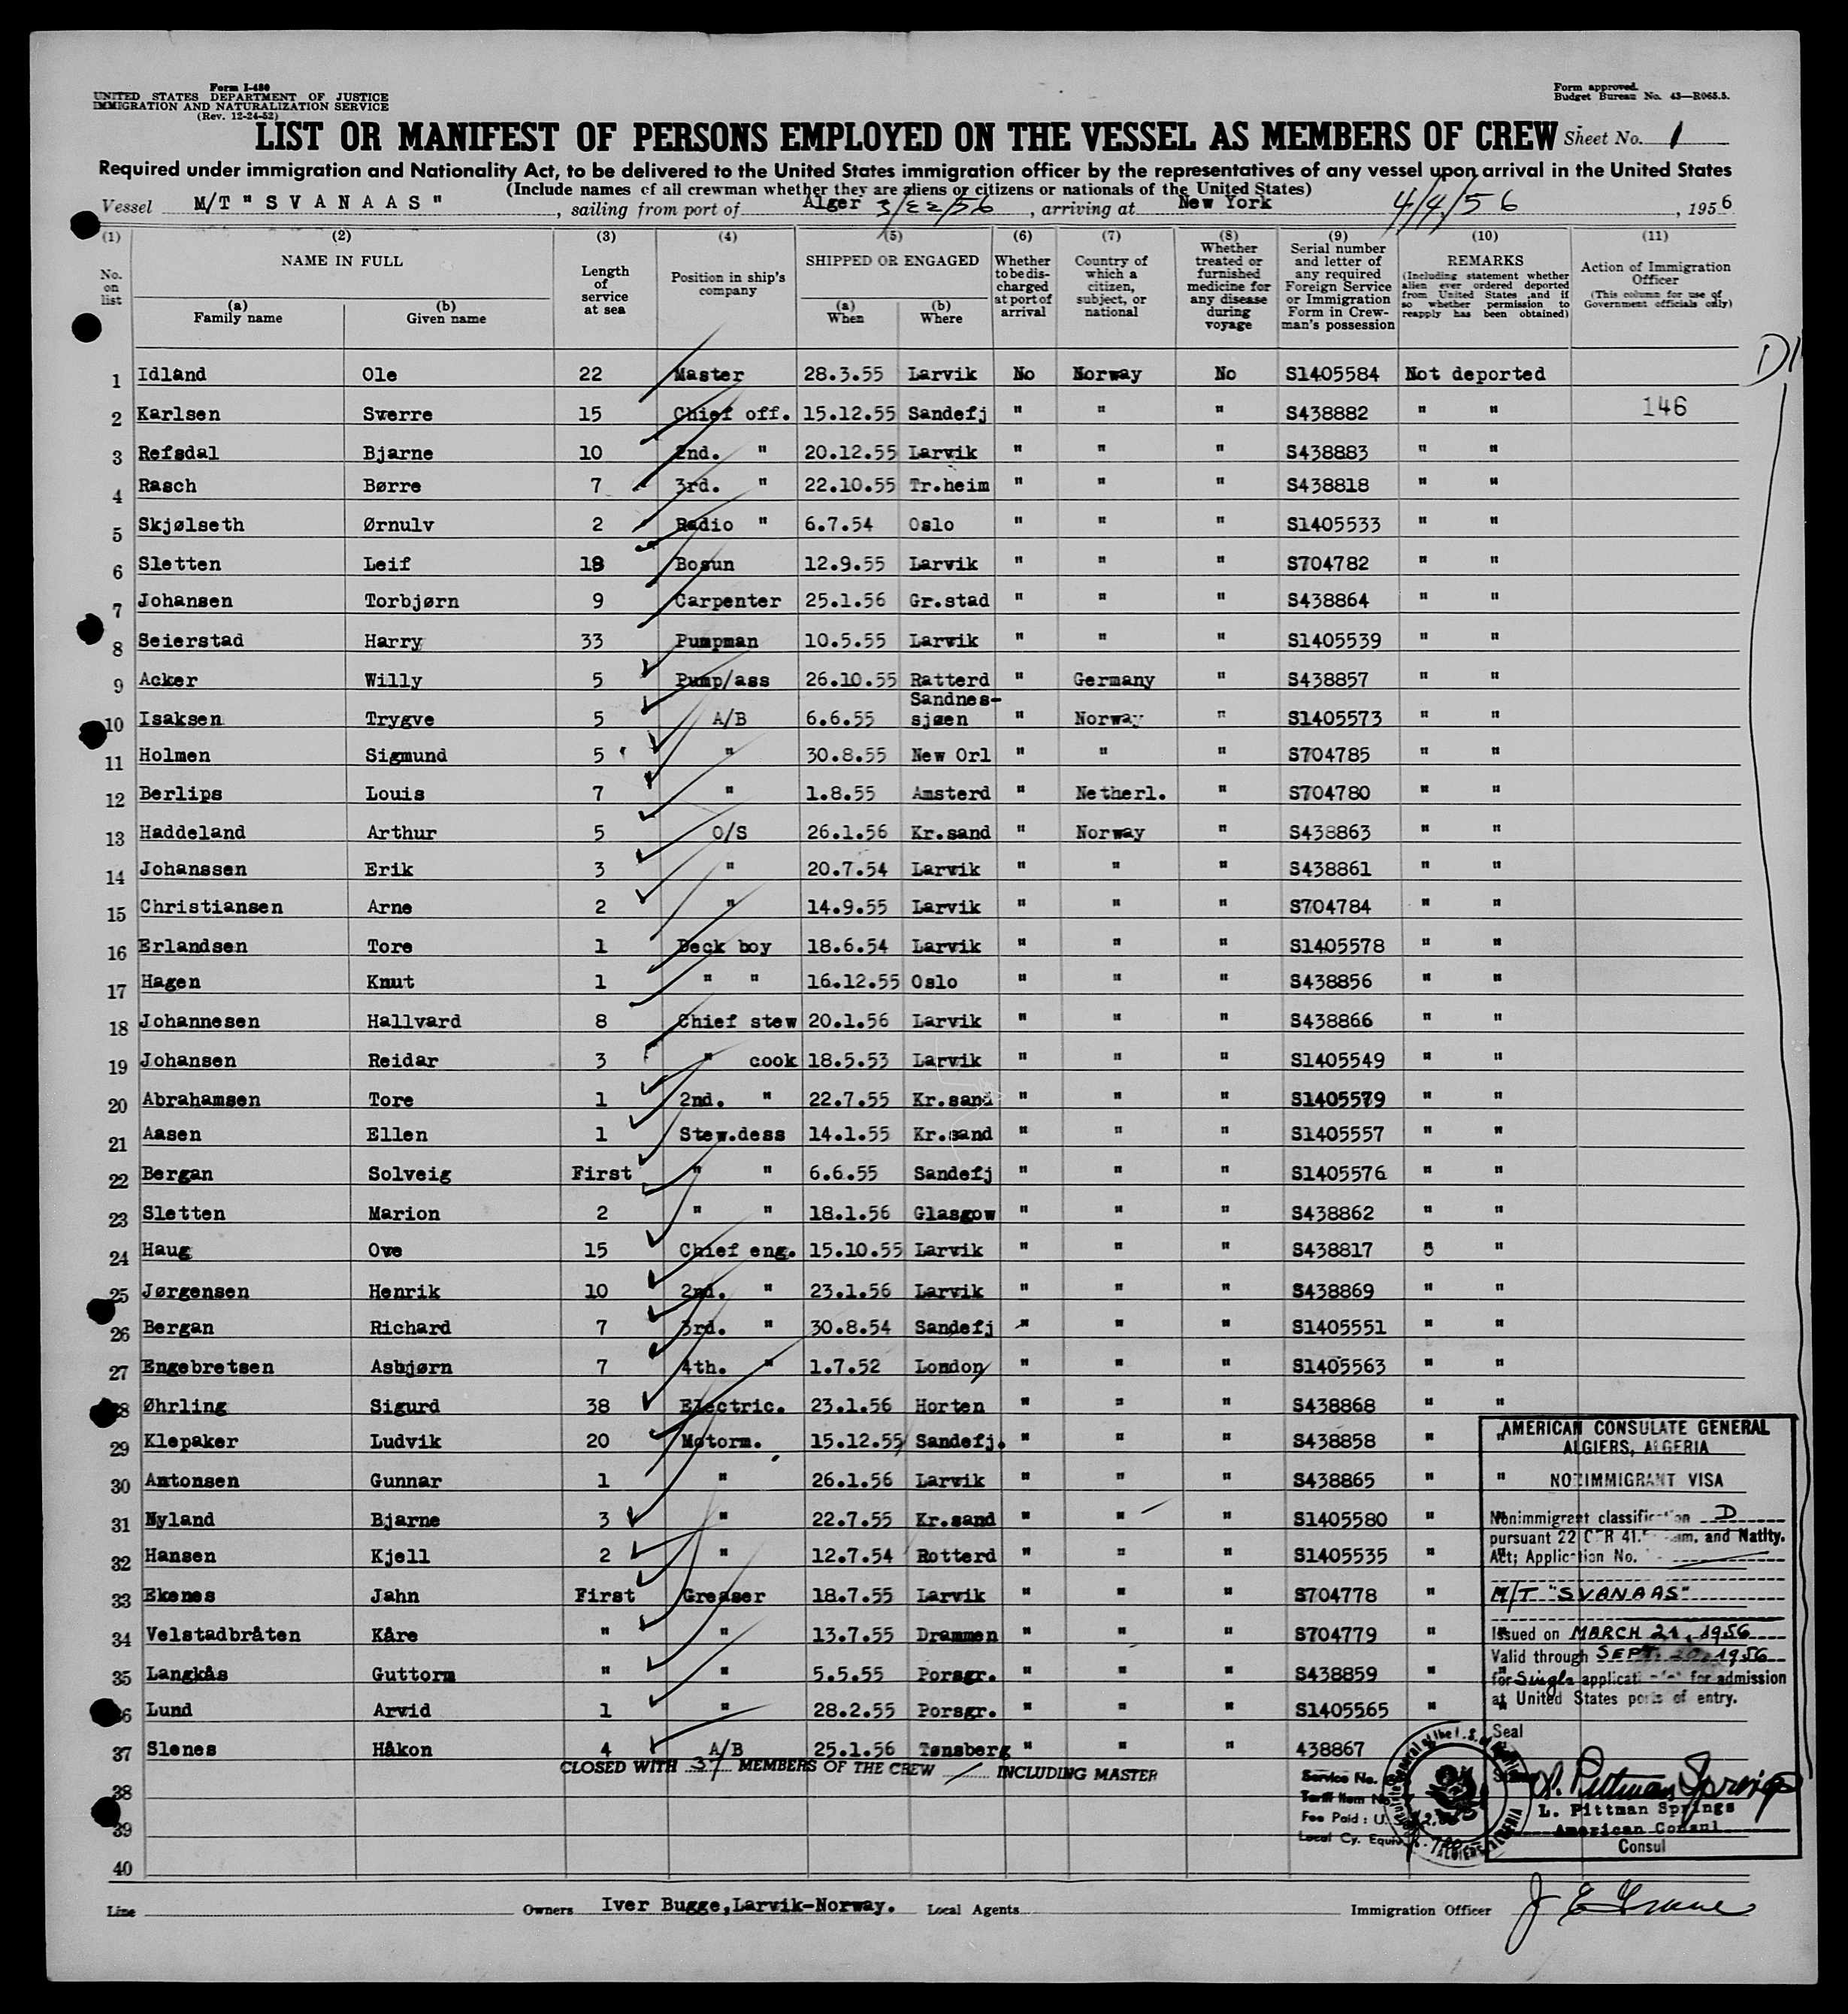 Form I-480
UNITED STATES DEPARTMENT OF JUSTICE
IMMIGRATION AND NATURALIZATION SERVICE
(Rev. 12-24-52)
Form approved.
Budget Bureau No. 43—R065.5.
LIST OR MANIFEST OF PERSONS EMPLOYED ON THE VESSEL AS MEMBERS OF CREW Sheet No. 1
Required under immigration and Nationality Act, to be delivered to the United States immigration officer by the representatives of any vessel upon arrival in the United States
(Include names of all crewman whether they are aliens or citizens or nationals of the United States)
Vessel M/T "SVANAAS", sailing from port of Alger 3/22/56, arriving at New York 4/4/56, 1956
(1) No. on list
(2) NAME IN FULL (a) Family name (b) Given name
(3) Length of service at sea
(4) Position in ship's company
(5) SHIPPED OR ENGAGED (a) When (b) Where
(6) Whether to be discharged at port of arrival
(7) Country of which a citizen, subject, or national
(8) Whether treated or furnished medicine for any disease during voyage
(9) Serial number and letter of any required Foreign Service or Immigration Form in Crewman's possession
(10) REMARKS (Including statement whether alien ever ordered deported from United States ,and if so whether permission to reapply has been obtained)
(11) Action of Immigration Officer (This column for use of Government officials only)
1 Idland Ole 22 Master 28.3.55 Larvik No Norway No S1405584 Not deported
2 Karlsen Swerre 15 Chief off. 15.12.55 Sandefj " " " S438882 " " 146
3 Refsdal Bjarne 10 2nd. " 20.12.55 Larvik " " " S438883 " "
4 Rasch Børre 7 3rd. " 22.10.55 Tr.heim " " " S438818 " "
5 Skjølseth Ørnulv 2 Radio " 6.7.54 Oslo " " " S1405533 " "
6 Sletten Leif 18 Bosun 12.9.55 Larvik " " " S704782 " "
7 Johansen Torbjørn 9 Carpenter 25.1.56 Gr.stad " " " S438864 " "
8 Seierstad Harry 33 Pumpman 10.5.55 Larvik " " " S1405539 " "
9 Acker Willy 5 Pump/ass 26.10.55 Ratterd " Germany " S438857 " "
10 Isaksen Trygve 5 A/B 6.6.55 Sandnes-sjøen " Norway " S1405573 " "
11 Holmen Sigmund 5 " 30.8.55 New Orl " " " S704785 " "
12 Berlips Louis 7 " 1.8.55 Amsterd " Netherl. " S704780 " "
13 Haddeland Arthur 5 O/S 26.1.56 Kr.sand " Norway " S438863 " "
14 Johanssen Erik 3 " 20.7.54 Larvik " " " S438861 " "
15 Christiansen Arne 2 " 14.9.55 Larvik " " " S704784 " "
16 Erlandsen Tore 1 Deck boy 18.6.54 Larvik " " " S1405578 " "
17 Hagen Knut 1 " " 16.12.55 Oslo " " " S438856 " "
18 Johannesen Hallvard 8 Chief stew 20.1.56 Larvik " " " S438866 " "
19 Johansen Reidar 3 " cook 18.5.53 Larvik " " " S1405549 " "
20 Abrahamsen Tore 1 2nd. " 22.7.55 Kr.sand " " " S1405579 " "
21 Aasen Ellen 1 Stew.dess 14.1.55 Kr.sand " " " S1405557 " "
22 Bergan Solveig First " " 6.6.55 Sandefj " " " S1405576 " "
23 Sletten Marion 2 " " 18.1.56 Glasgow " " " S438862 " "
24 Haug Ove 15 Chief eng. 15.10.55 Larvik " " " S438817 " "
25 Jørgensen Henrik 10 2nd. " 23.1.56 Larvik " " " S438869 " "
26 Bergan Richard 7 3rd. " 30.8.54 Sandefj " " " S1405551 " "
27 Engebretsen Asbjørn 7 4th. " 1.7.52 London " " " S1405563 " "
28 Øhrling Sigurd 38 Electric. 23.1.56 Horten " " " S438868 " "
29 Klepaker Ludvik 20 Motorm. 15.12.55 Sandefj. " " " S438858 " "
30 Antonsen Gunnar 1 " 26.1.56 Larvik " " " S438865 " "
31 Nyland Bjarne 3 " 22.7.55 Kr.sand " " " S1405580 " "
32 Hansen Kjell 2 " 12.7.54 Rotterd " " " S1405535 " "
33 Ekenes Jahn First Greaser 18.7.55 Larvik " " " S704778 " "
34 Velstadbråten Kåre " " 13.7.55 Drammen " " " S704779 " "
35 Langkås Guttorm " " 5.5.55 Porsgr. " " " S438859 " "
36 Lund Arvid 1 " 28.2.55 Porsgr. " " " S1405565 " "
37 Slenes Håkon 4 A/B 25.1.56 Tønsberg " " " 438867
CLOSED WITH 37 MEMBERS OF THE CREW INCLUDING MASTER
38
39
40
AMERICAN CONSULATE GENERAL
ALGIERS, ALGERIA
NONIMMIGRANT VISA
Nonimmigrant classification D
pursuant 22 CFR 41. and Natlty.
Act; Application No.
M/T "SVANAAS"
Issued on MARCH 21, 1956
Valid through SEPT. 20, 1956
for Single application for admission
at United States ports of entry.
Seal
L. Pittman Springs
L. Pittman Springs
American Consul
Consul
Service No.
Tariff Item No.
Fee Paid : U.S.
Local Cy. Equiv.
Line
Owners Iver Bugge,Larvik-Norway.
Local Agents
Immigration Officer